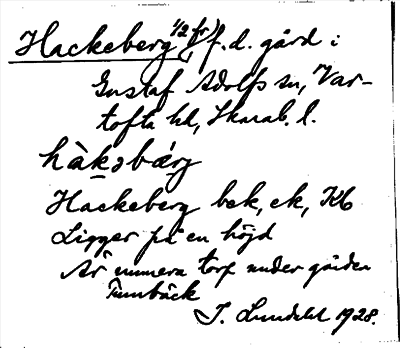 Hackeberg 1/2 fr, f.d. gård i
Gustaf Adolfs sn, Var-
tofta hd, Skarab. l.
hàkəbǽrj
Hackeberg bek, ek, Kb
Ligger på en höjd
Är numera torp under gården
Tunbäck
J. Lundahl 1928.